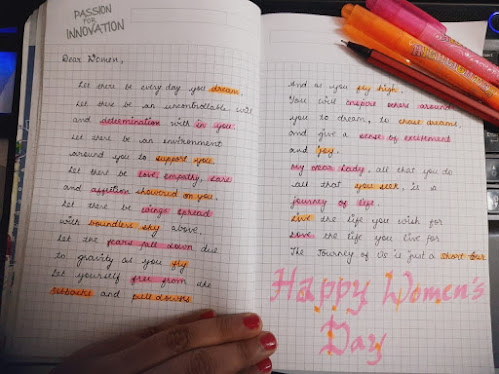 PASSION
for
INNOVATION
Dear Women,
Let there be every day you dream
Let there be an uncontrollable will
and determination with in you.
Let there be an environment
around you to support you.
Let there be love, empathy, care
and affection showered on you.
Let there be wings spread
with boundless sky above,
Let the fears fall down due
to gravity as you fly
Let yourself free from the
setbacks and pull downs
And as you fly high,
You will inspire others around
you to dream, to chase dreams,
and give a sense of excitement
and joy.
My dear lady, all that you do
all that you seek, is a
journey of life.
Live the life you wish for
Love the life you live for
The Journey of Us is just a short
Happy Women's
Day